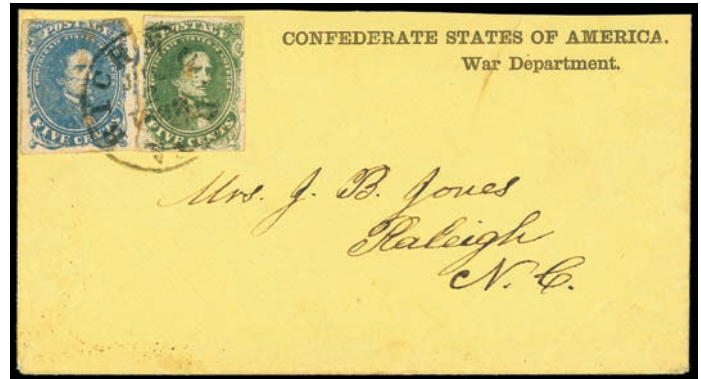 POSTAGE
FIVE CENTS
POSTAGE
FIVE CENTS
CONFEDERATE STATES OF AMERICA.
War Department.
Mrs. J. B. Jones
Raleigh
N. C.